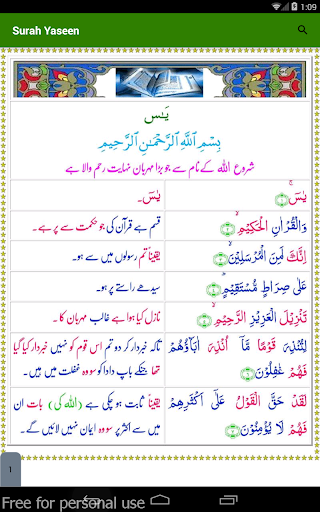 1:09
Surah Yaseen
يٰـس
بِسْمِ اللَّهِ الرَّحْمَٰنِ الرَّحِيمِ
شروع اللہ کے نام سے جو بڑا مہربان نہایت رحم والا ہے
يٰسٓ ۚ ﴿۱﴾
یٰسٓ۔
وَالْقُرْاٰنِ الْحَكِيْمِ ۙ ﴿۲﴾
قسم ہے قرآن کی جو حکمت سے پر ہے۔
اِنَّكَ لَمِنَ الْمُرْسَلِيْنَ ۙ ﴿۳﴾
یقیناً تم رسولوں میں سے ہو۔
عَلٰى صِرَاطٍ مُّسْتَقِيْمٍ ؕ ﴿۴﴾
سیدھے راستے پر ہو۔
تَنْزِيْلَ الْعَزِيْزِ الرَّحِيْمِ ۙ ﴿۵﴾
نازل کیا ہوا ہے غالب مہربان کا۔
لِتُنْذِرَ قَوْمًا مَّاۤ اُنْذِرَ اٰبَآؤُهُمْ
فَهُمْ غٰفِلُوْنَ ﴿۶﴾
تاکہ خبردار کر دو تم اس قوم کو نہیں خبردار کیا گیا
تھا جنکے باپ دادا کو سو وہ غفلت میں ہیں۔
لَقَدْ حَقَّ الْقَوْلُ عَلٰٓى اَكْثَرِهِمْ
فَهُمْ لَا يُؤْمِنُوْنَ ﴿۷﴾
یقیناً ثابت ہو چکی ہے (اللہ کی) بات ان
میں سے اکثر پر سو وہ ایمان نہیں لائیں گے۔
1
Free for personal use